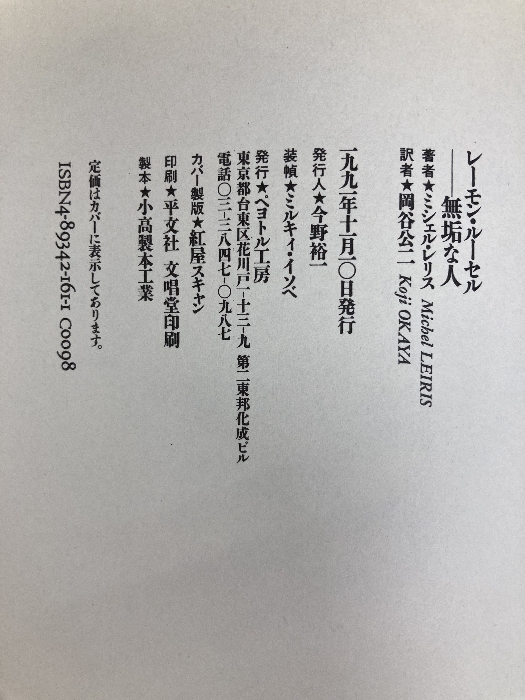 レーモン・ルーセル
――無垢な人
著者★ミシェル・レリス Michel LEIRIS
訳者★岡谷公二 Koji OKAYA
一九九一年十一月一〇日発行
発行人★今野裕一
装幀★ミルキィ・イソベ
発行★ペヨトル工房
東京都台東区花川戸一−十三−九 第二東邦化成ビル
電話〇三−三八四七−〇九八七
カバー製版★紅屋スキャン
印刷★平文社 文唱堂印刷
製本★小高製本工業
定価はカバーに表示してあります。
ISBN4-89342-161-1 C0098